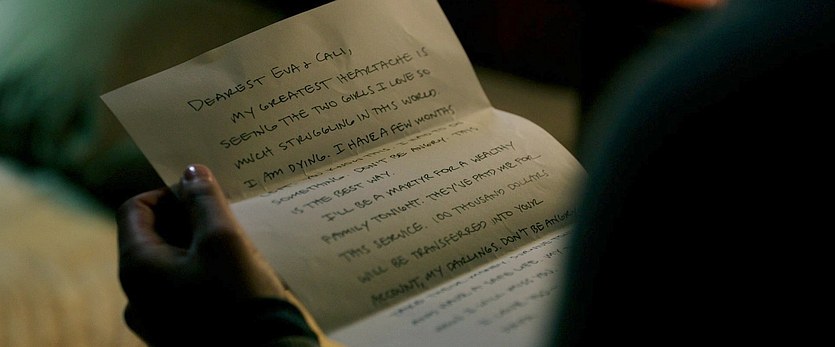 DEAREST EVA & CALI,
MY GREATEST HEARTACHE IS
SEEING THE TWO GIRLS I LOVE SO
MUCH STRUGGLING IN THIS WORLD.
I AM DYING. I HAVE A FEW MONTHS
SOMETHING. DON'T BE ANGRY. THIS
IS THE BEST WAY.
I'LL BE A MARTYR FOR A WEALTHY
FAMILY TONIGHT. THEY'VE PAID ME FOR
THIS SERVICE. 100 THOUSAND DOLLARS
WILL BE TRANSFERRED INTO YOUR
ACCOUNT, MY DARLINGS. DON'T BE ANGRY
TAKE
HAVE A SAFE LIFE. MY
MISS YOU
I LOVE YOU